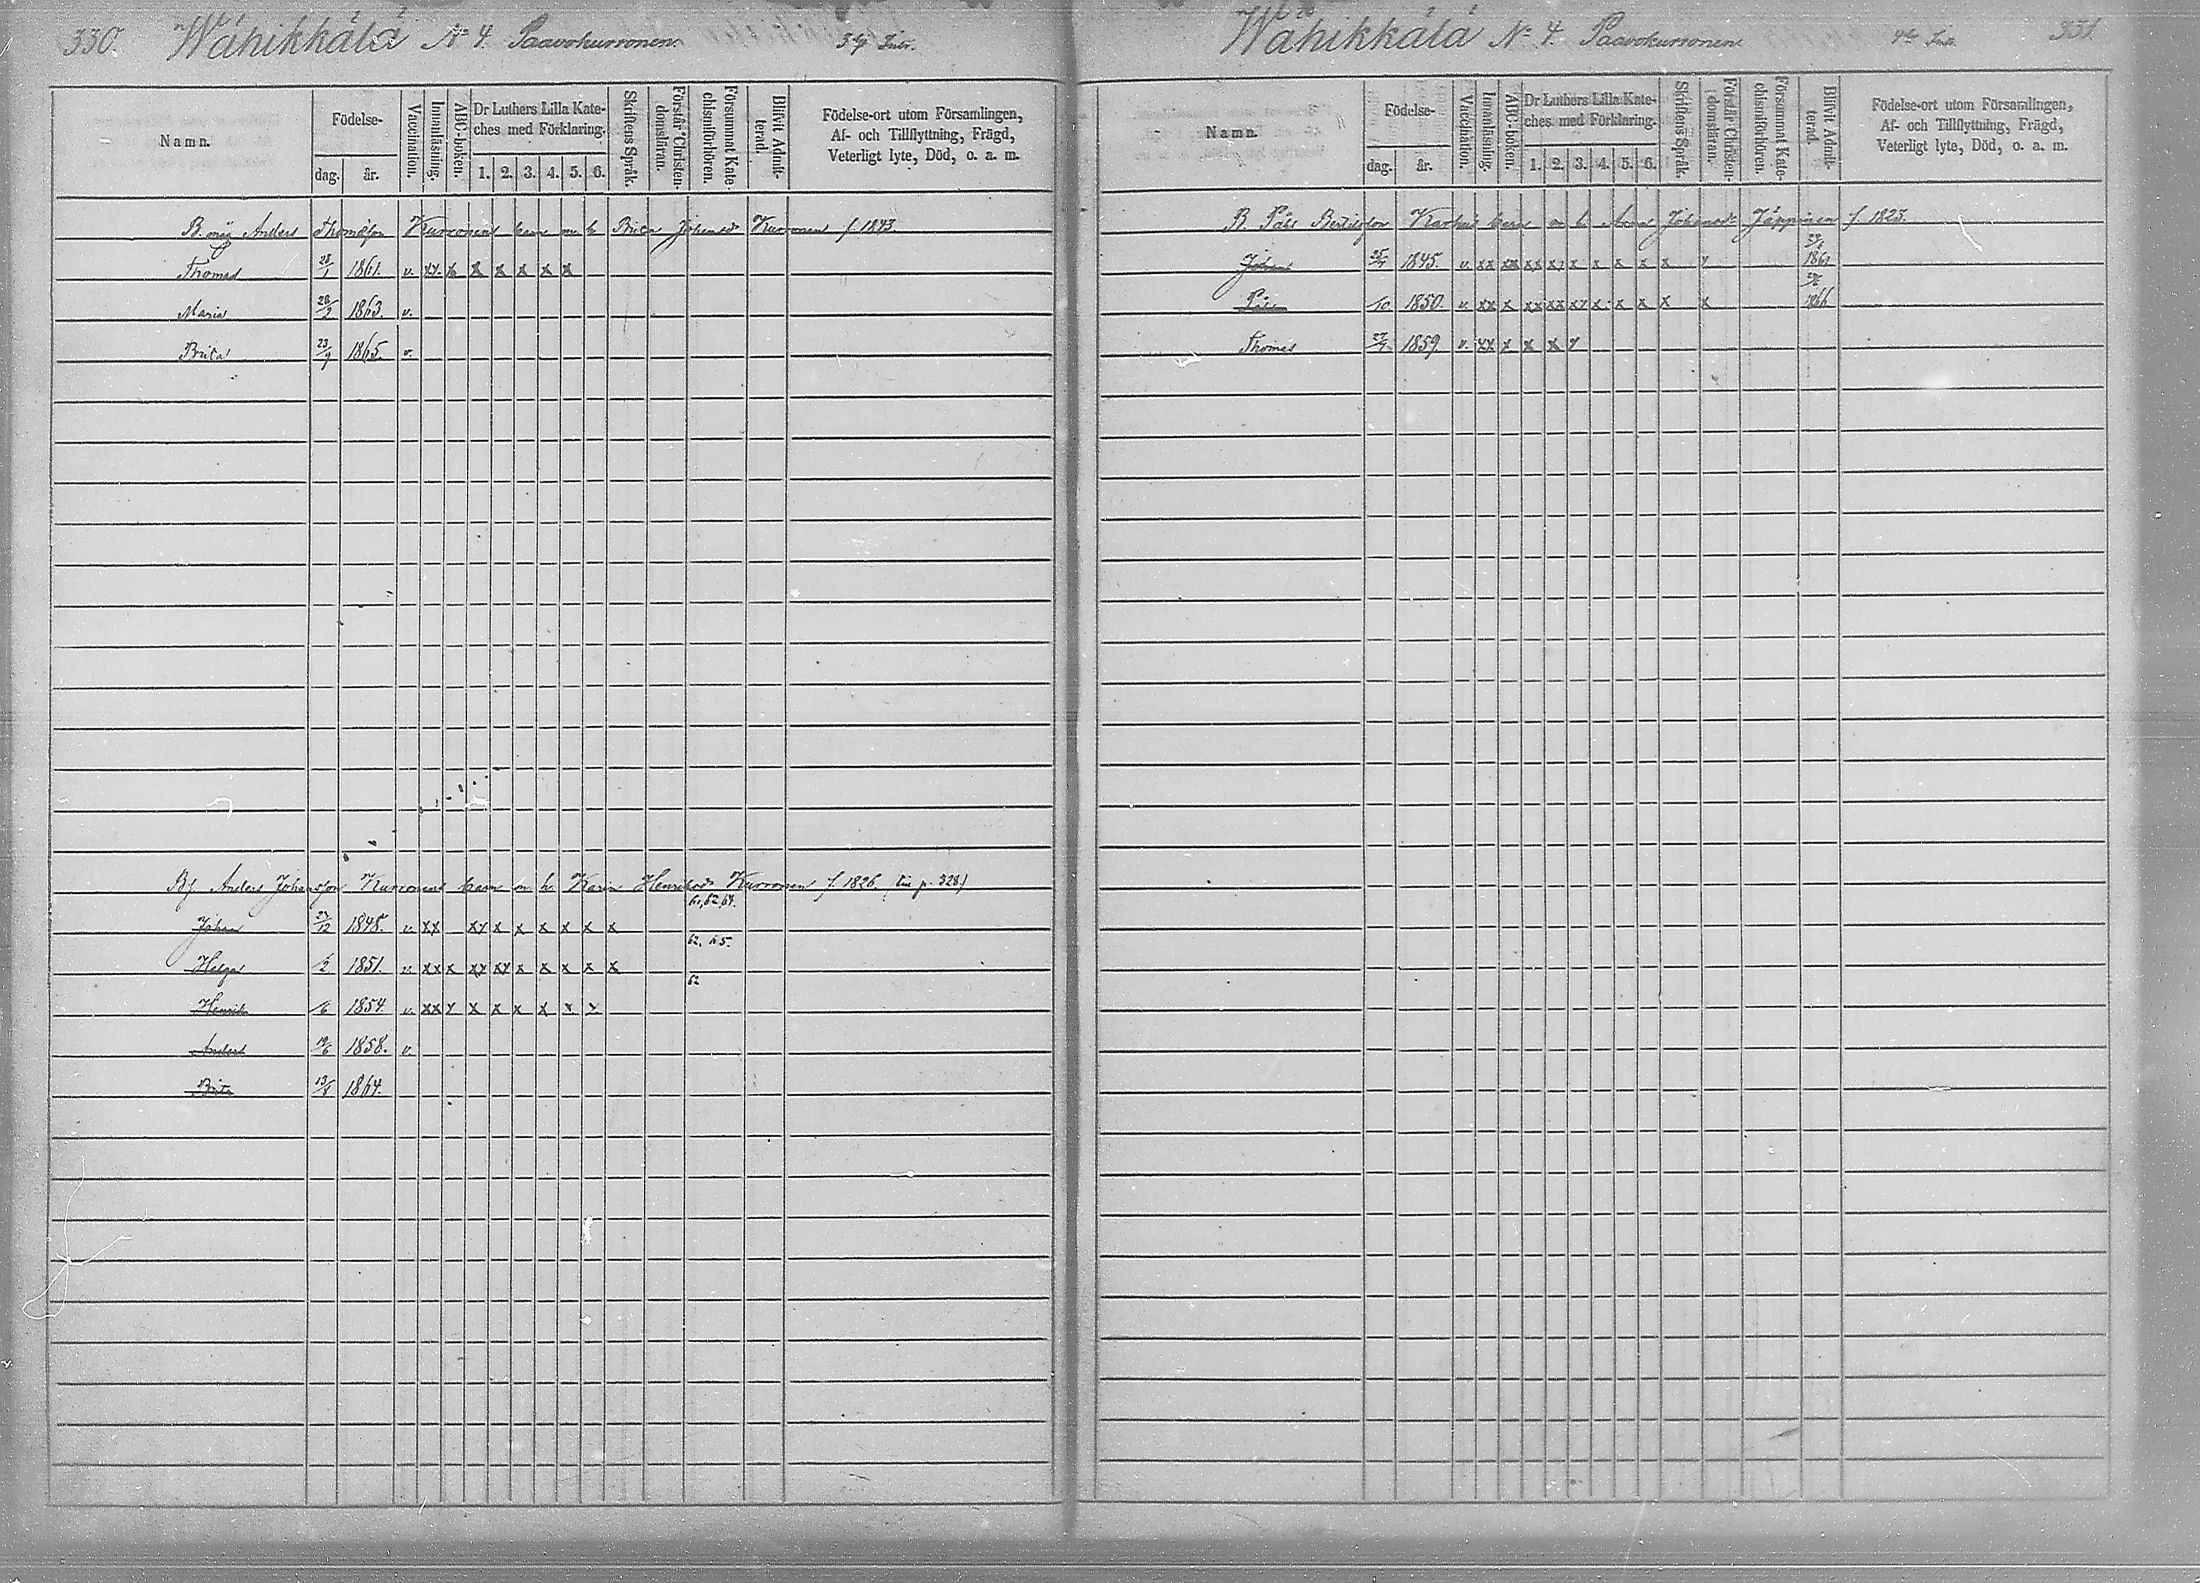 330. Wähikkälä No 4. Paavokurronen. 3dje Intr.
Namn. Födelse- dag. år. Vaccination. Innanläsning. ABC-boken. Dr Luthers Lilla Kateches med Förklaring. 1. 2. 3. 4. 5. 6. Skriftens Språk. Förstår Christendomsläran. Försummat Katechismiförhören. Blifvit Admitterad. Födelse-ort utom Församlingen, Af- och Tillflyttning, Frägd, Veterligt lyte, Död, o. a. m.
Anders Thomasson Kurronens barn m. h. Brita Johansdr Kurronen f. 1843.
Thomas 28/1 1861. v. xx x x x x x x
Maria 28/2 1863. v.
Brita 23/9 1865. v.
Anders Johansson Kurronens barn m h. Karin Henriksdr Kurronen f. 1826. (se p. 328.)
61, 62, 64.
Johan 27/12 1848. v. xx xx x x x x x x
62, 65.
Helga 1/2 1851. v. xx x xx xx x x x x x
62
Henrik 1/6 1854. v. xx x x x x x x x
Anders 19/6 1858. v.
Brita 13/8 1864.
Wähikkälä No 4. Paavokurronen 4de Intr. 331.
Namn. Födelse- dag. år. Vaccination. Innanläsning. ABC-boken. Dr Luthers Lilla Kateches med Förklaring. 1. 2. 3. 4. 5. 6. Skriftens Språk. Förstår Christendomsläran. Försummat Katechismiförhören. Blifvit Admitterad. Födelse-ort utom Församlingen, Af- och Tillflyttning, Frägd, Veterligt lyte, Död, o. a. m.
B. Påhl Bertilsson Karhus barn m h. Anna Johansdr Jäppinen f. 1825.
Johan 1845. v. xx xx xx xx x x x x x x 1861
Påhl /10 1850. v. xx x xx xx xx x x x x x 1866
Thomas 1859 v. xx x x x x